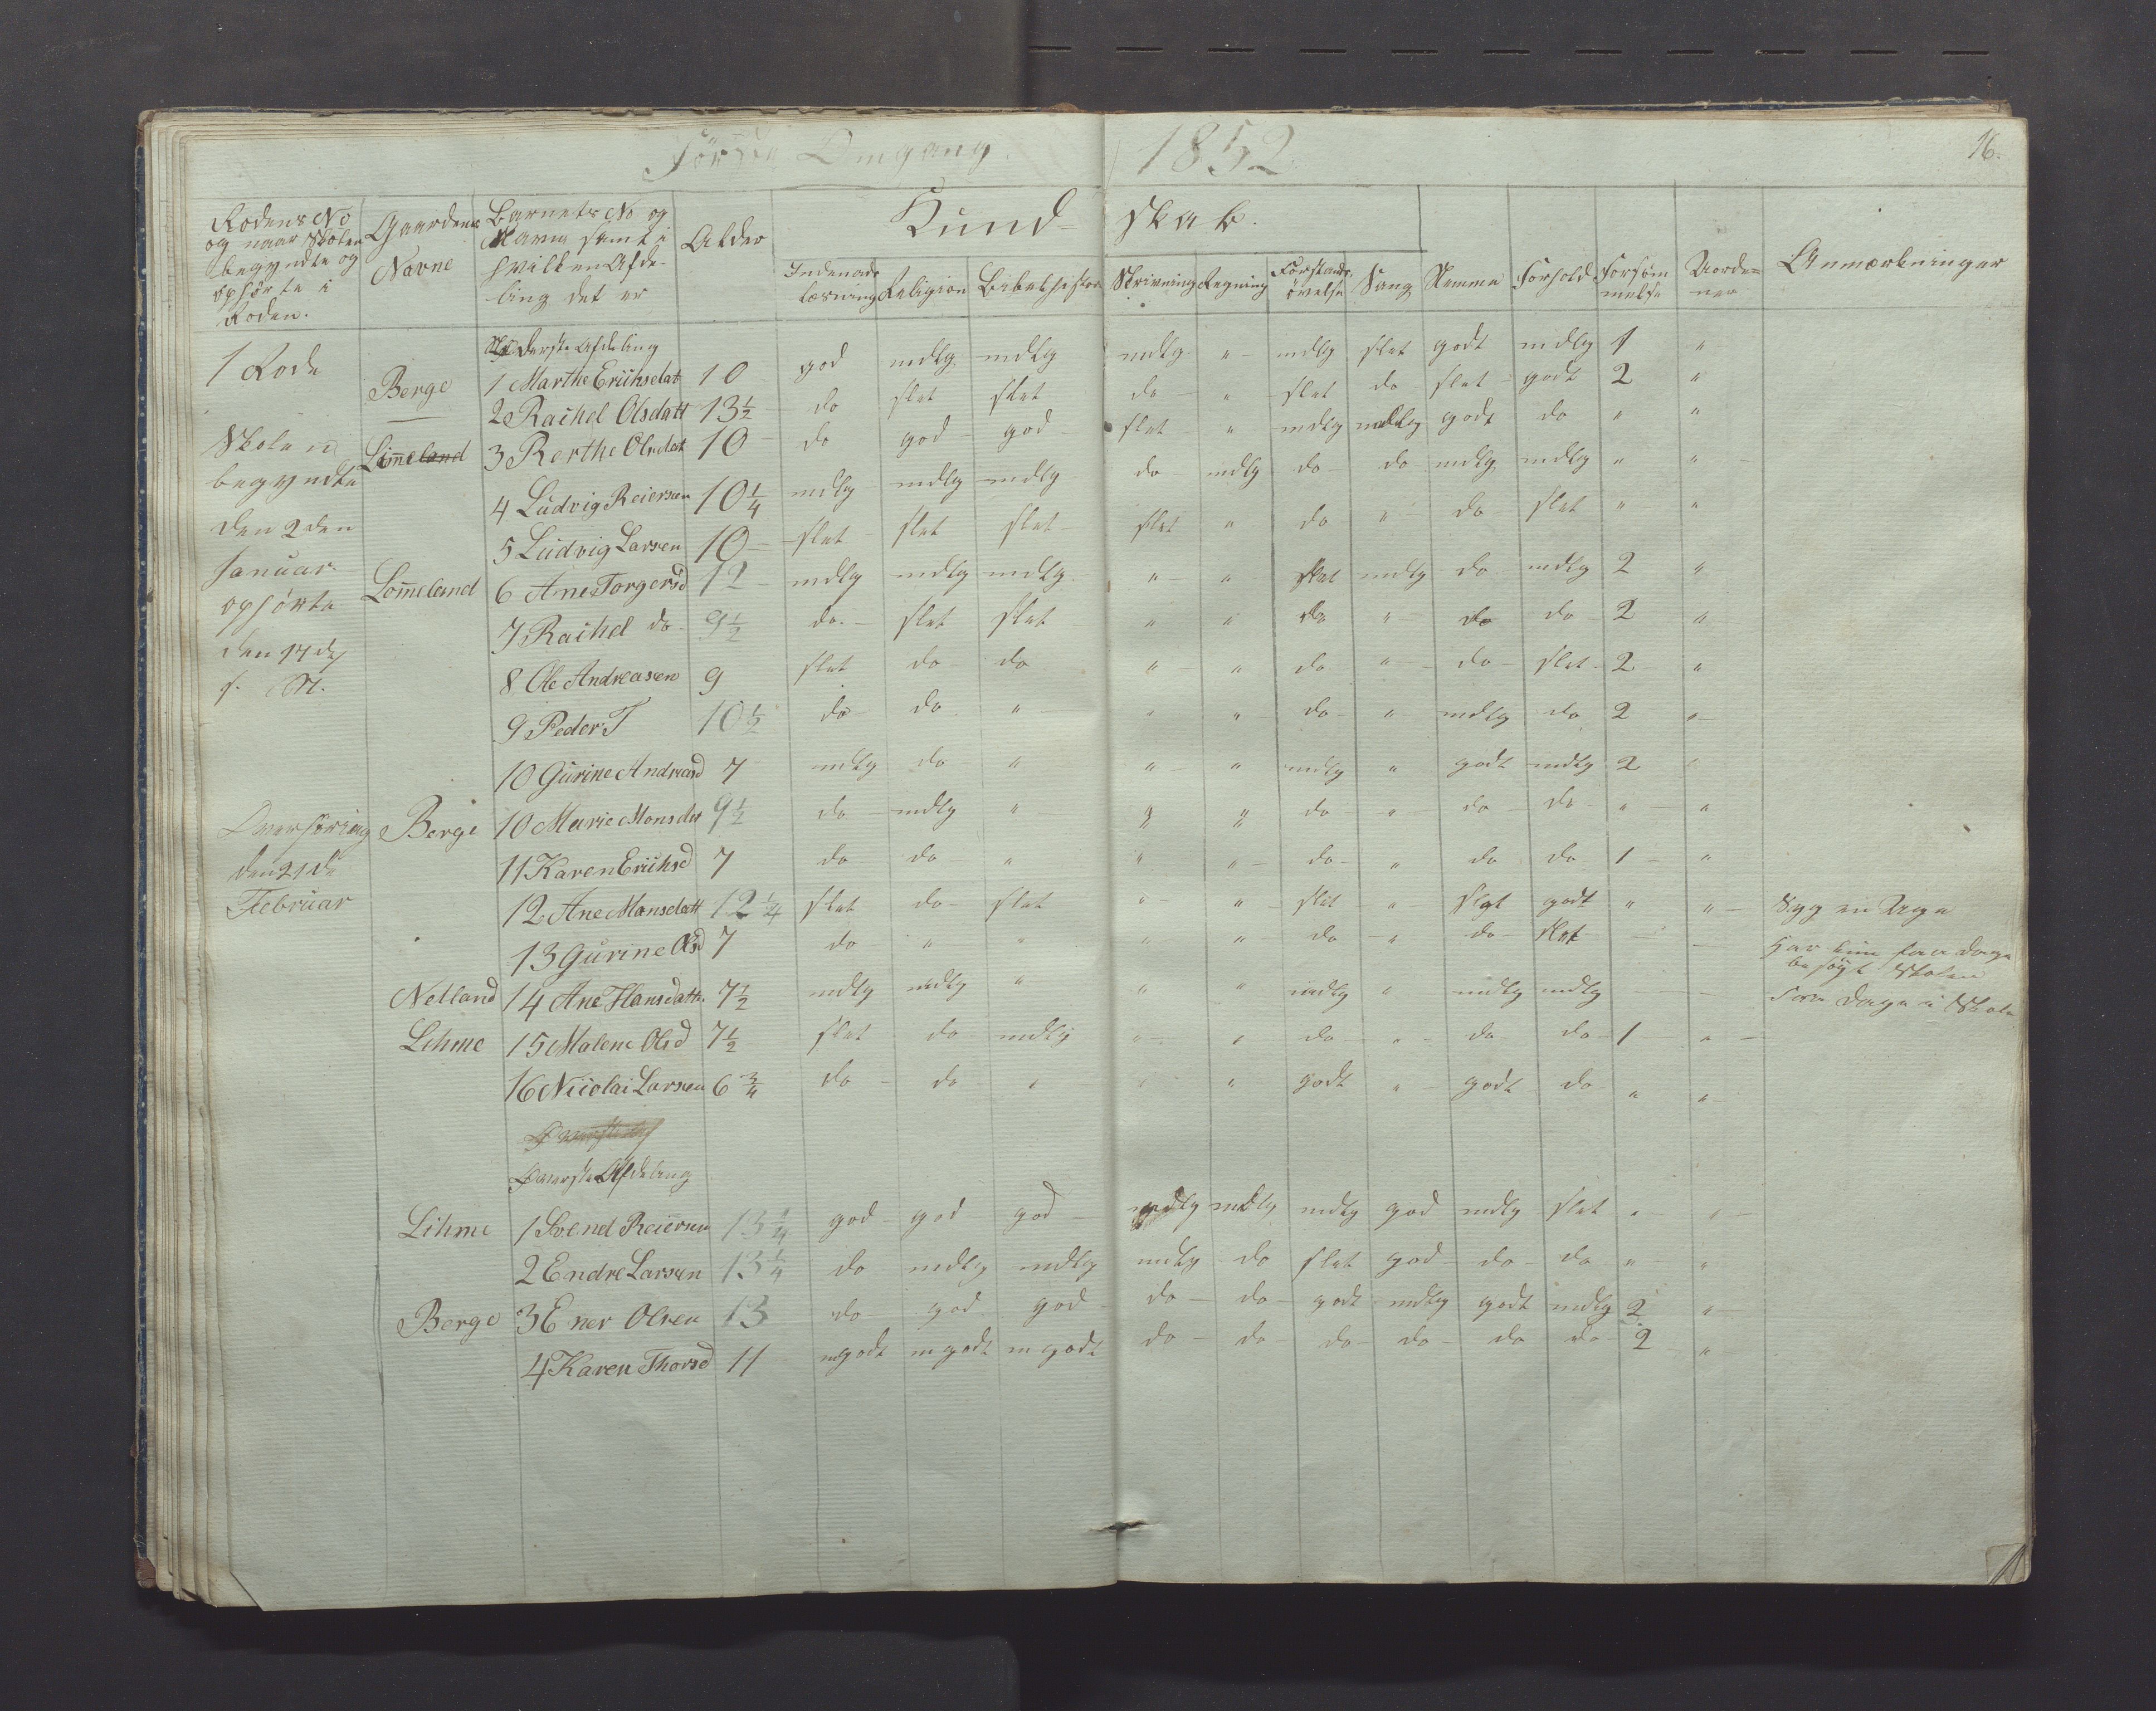 Første Omgang 1852.
16.
Rodens No og naar Skolen begyndte og ophørte i Roden. Gaardens Navne Barnets No og Navn samt i hvilken Afdeling det er Alder Kundskab. Indenadslæsning Religion Bibelhistorie Skrivning Regning Forstandsøvelse Sang Nemme Forhold Forsømmelse Uordener Anmærkninger
1 Rode
Nederste Afdeling
Berge 1 Marthe Erichsdat 10 god mdlg mdlg mdlg " mdlg slet godt mdlg 1 "
— 2 Rachel Olsdatt 13½ do slet slet do " slet do slet godt 2 "
Skolen begyndte den 2den Januar ophørte den 17de s. M.
3 Berthe Olsdat 10 do god god slet " mdlg mdlg godt do " "
4 Ludvig Reiersen 10¼ mdlg mdlg mdlg do mdlg do do mdlg mdlg " "
5 Ludvig Larsen 10 slet slet slet slet " do " do slet " "
Lomeland 6 Ane Torgersd 12 mdlg mdlg mdlg " " slet mdlg do mdlg 2 "
7 Rachel do 9½ do slet slet " " do " do do 2 "
8 Ole Andreasen 9 slet do do " " do " do slet 2 "
9 Peder T 10½ do do " " " do " mdlg do 2 "
10 Gurine Andreasd 7 mdlg do " " " mdlg " godt mdlg 2 "
Overhøring den 21de Februar
Berge 10 Marie Monsdat 9½ do mdlg " " " do " do do " "
11 Karen Erichsd 7 do do " " " do " do do 1 "
12 Ane Monsdatt 12¼ slet do slet " " slet " slet godt " " Syg en Uge
13 Gurine Olsd 7 do " " " " do " do slet — — Har kun faa Dage besøgt Skolen
Netland 14 Ane Hansdatter 7½ mdlg mdlg " " " mdlg " mdlg mdlg — — Faa Dage i Skole
Lihme 15 Malene Olsd 7½ slet do mdlg " " do " do do 1 "
16 Nicolai Larsen 6¾ do do " " " godt " godt do " "
Øverste Afdeling
Lihme 1 Svend Reiersen 13¼ god god god mdlg mdlg mdlg god mdlg slet " "
2 Endre Larsen 13¼ do mdlg mdlg mdlg do slet god do do " "
Berge 3 Ener Olsen 13 do god god do do godt mdlg godt mdlg 2 "
4 Karen Thorsd 11 mgodt mgodt mgodt do do do do do do 2 "